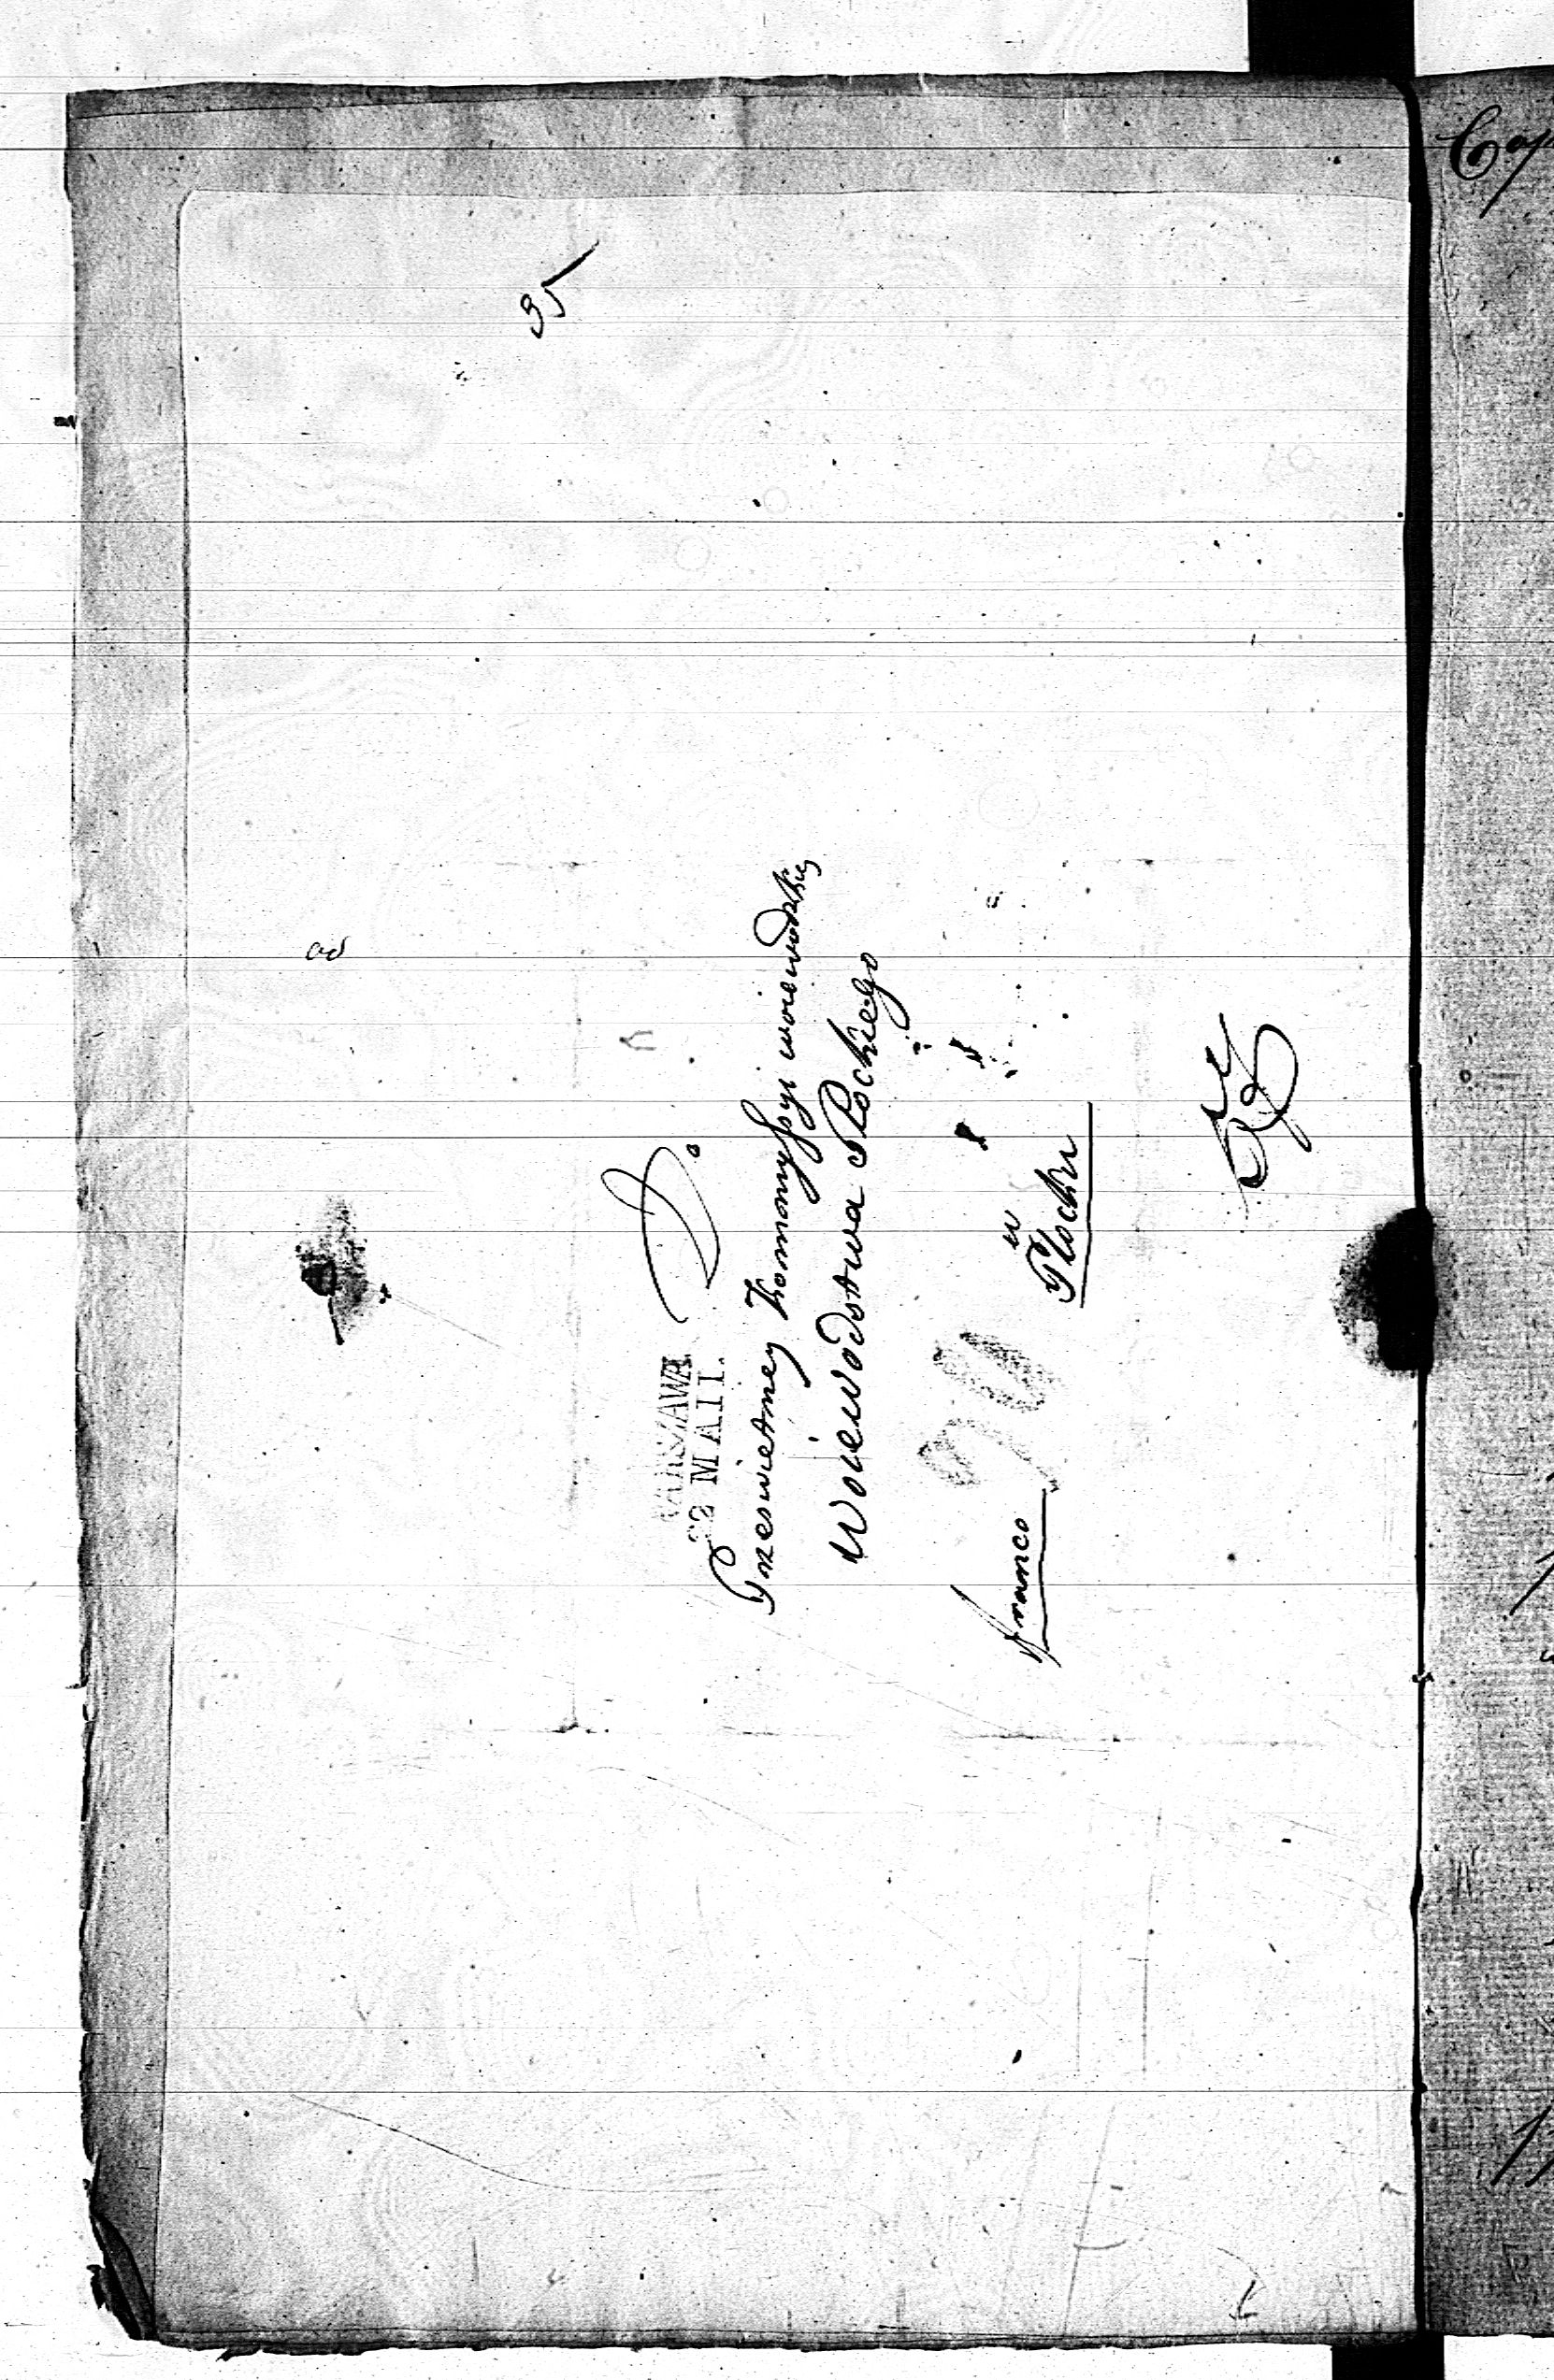 35
ad
WARSZAWA.
22 MAII.
Do
Przeswietney Kommyssyi woiewodzkiey
Woiewodztwa Płockiego
w
Płocku
franco